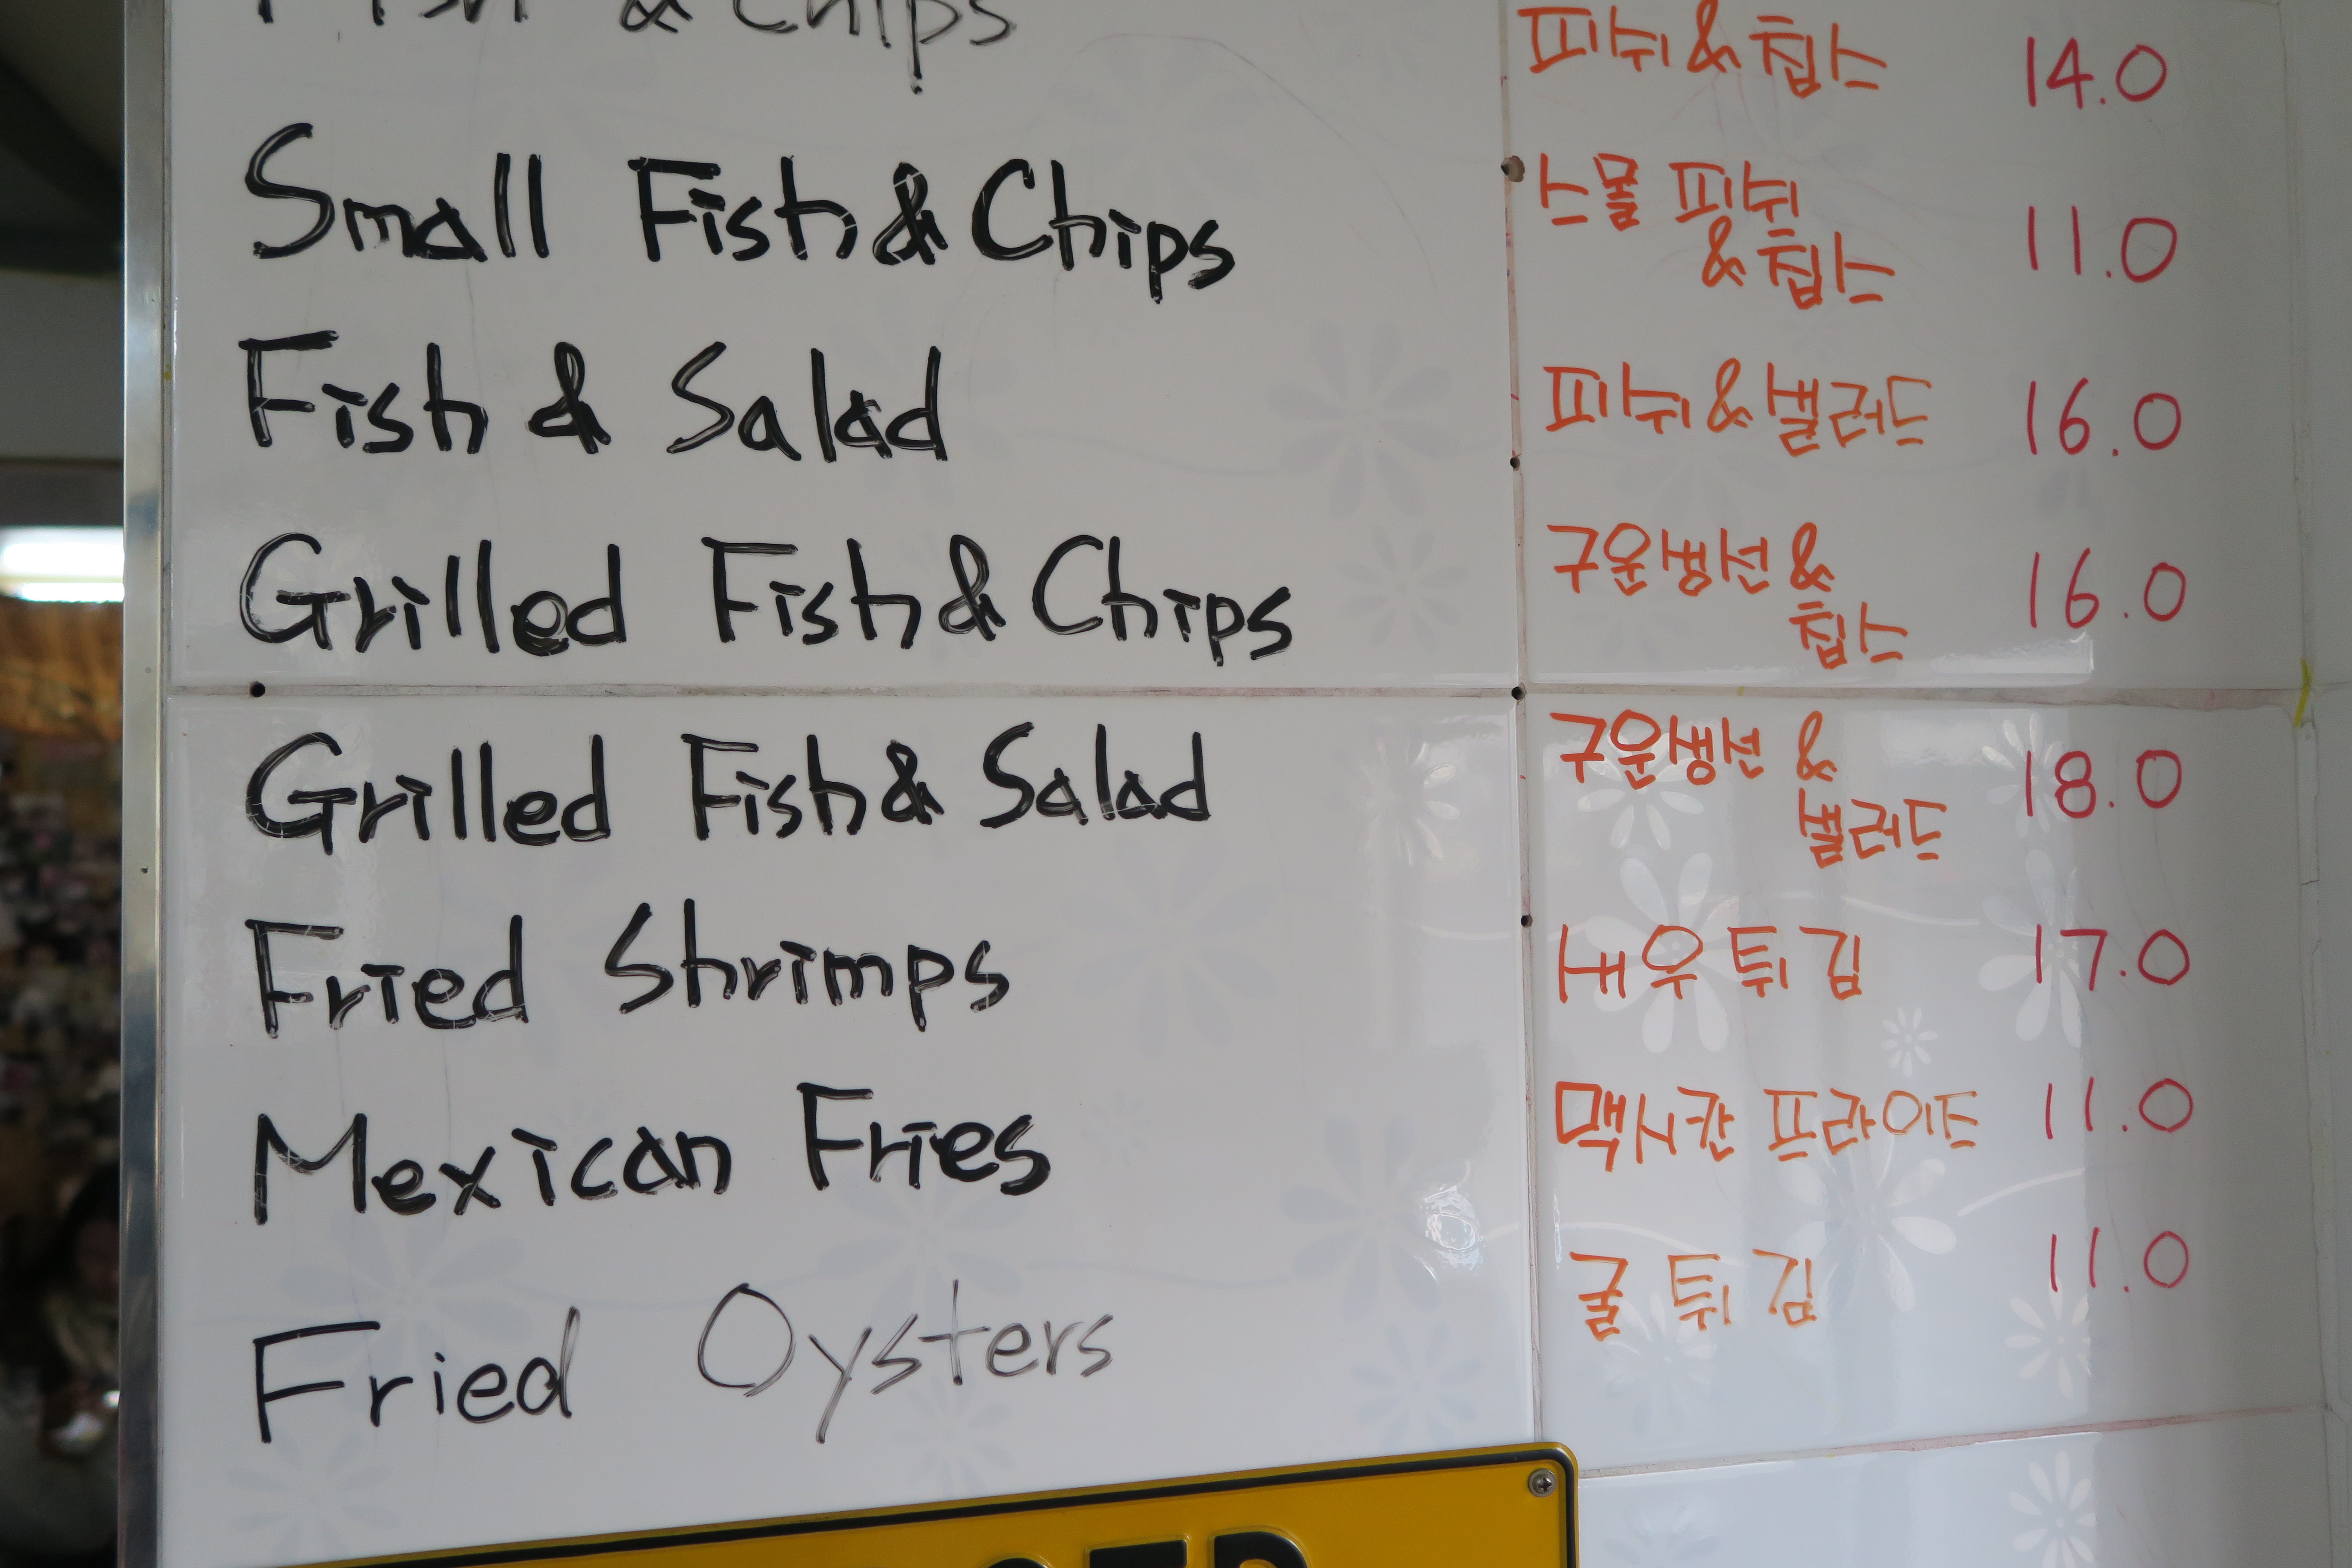 Fish & Chips 피쉬 & 칩스 14.0
Small Fish & Chips 스몰 피쉬 11.0
& 칩스
Fish & Salad 피쉬 & 샐러드 16.0
Grilled Fish & Chips 구운생선 & 16.0
칩스
Grilled Fish & Salad 구운생선 & 18.0
샐러드
Fried Shrimps 새우 튀김 17.0
Mexican Fries 맥시칸 프라이드 11.0
Fried Oysters 굴 튀김 11.0